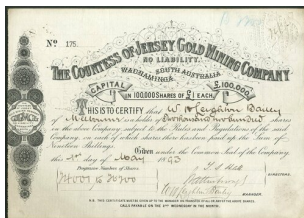 Nº 175.
THE COUNTESS OF JERSEY GOLD MINING COMPANY
NO LIABILITY.
WADNAMINGA SOUTH AUSTRALIA
CAPITAL £100,000
IN 100,000 SHARES OF £1 EACH.
THIS IS TO CERTIFY that W. H. Leighton Bailey
of Melbourne is a holder of Two thousand two hundred shares
in the above Company, subject to the Rules and Regulations of the said
Company, on each of which shares there has been paid up the Sum of
Nineteen Shillings.
Given under the Common Seal of the Company
this day of May 1893
Progressive Number of Shares
DIRECTORS.
MANAGER.
N.B. THIS CERTIFICATE MUST BE GIVEN UP TO THE MANAGER ON TRANSFER OF ALL OR ANY OF THE ABOVE SHARES.
CALLS PAYABLE ON THE 2ND WEDNESDAY IN THE MONTH.